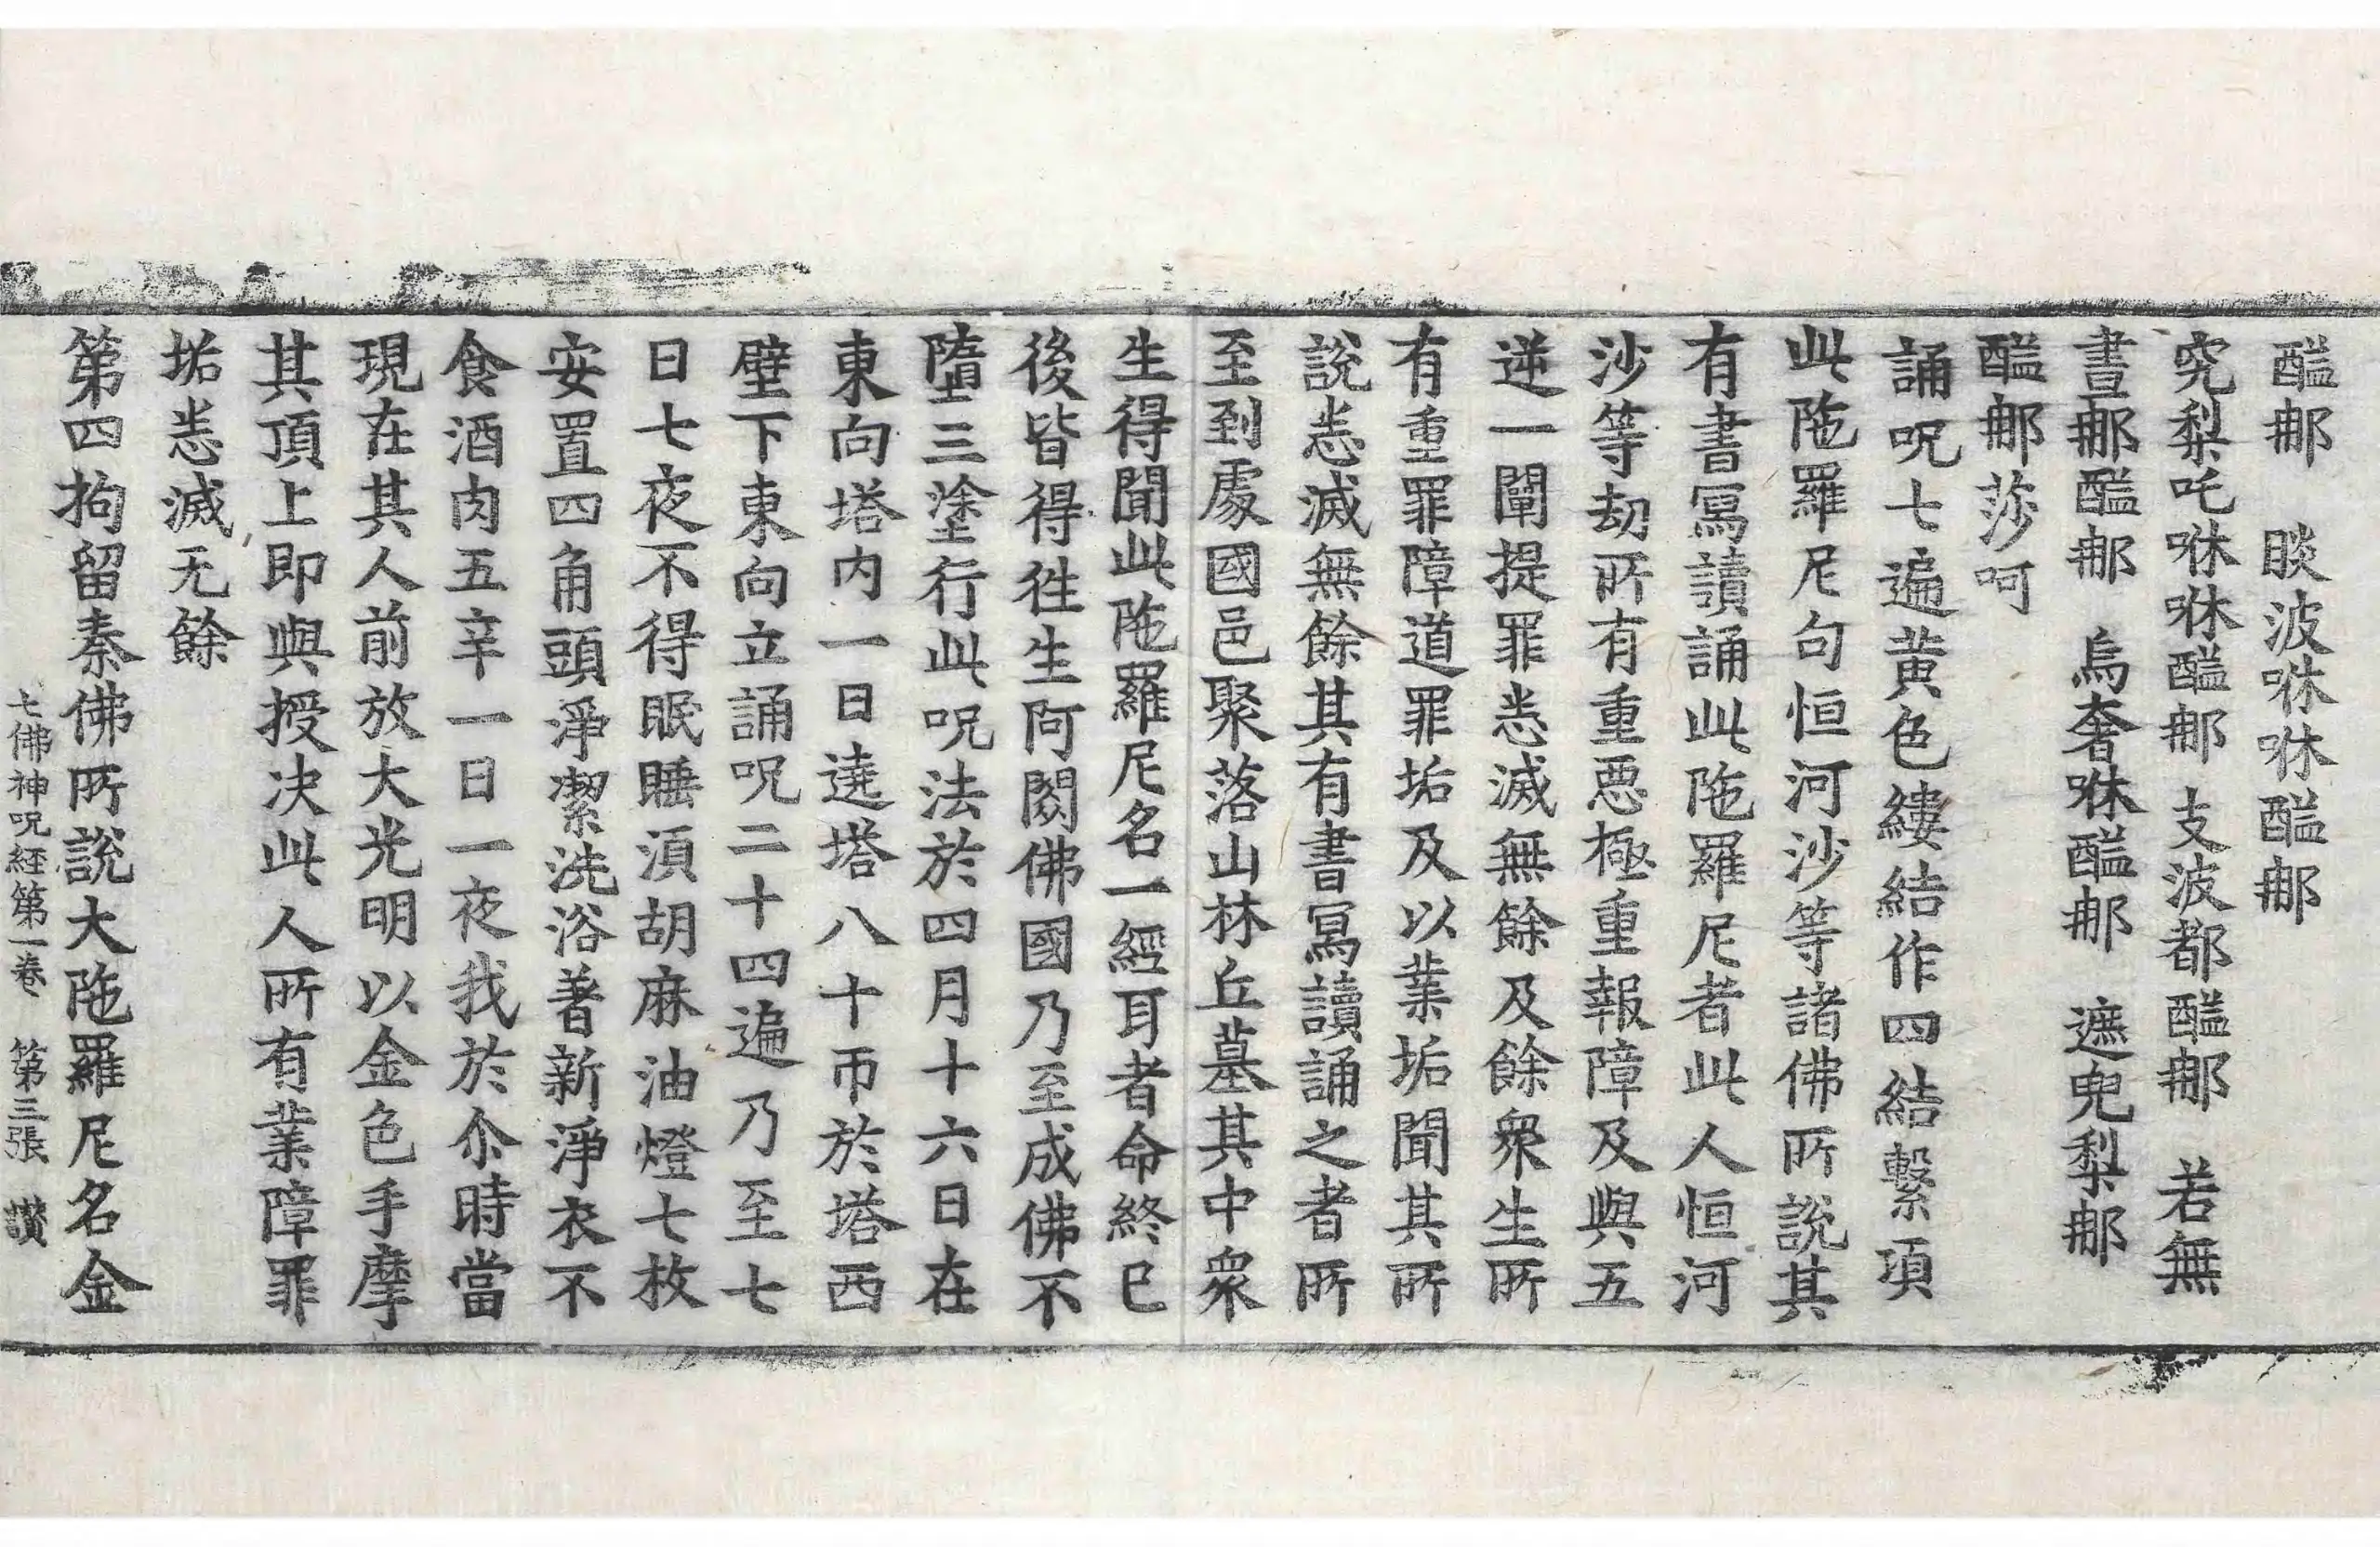 醯𨚗　睒波咻咻醯𨚗
究梨吒咻咻醯𨚗　支波都醯𨚗　若無
晝𨚗醯𨚗　烏奢咻醯𨚗　遮兜梨𨚗
醯𨚗莎呵
誦呪七遍黄色縷結作四結繫項
此陁羅尼句恒河沙等諸佛所說其
有書寫讀誦此陁羅尼者此人恒河
沙等劫所有重惡極重報障及與五
逆一闡提罪悉滅無餘及餘衆生所
有重罪障道罪垢及以業垢聞其所
說悉滅無餘其有書寫讀誦之者所
至到處國邑聚落山林丘墓其中衆
生得聞此陁羅尼名一經耳者命終已
後皆得徃生阿閦佛國乃至成佛不
墮三塗行此呪法於四月十六日在
東向塔内一日遶塔八十帀於塔西
壁下東向立誦呪二十四遍乃至七
日七夜不得眠睡湏胡麻油燈七枚
安置四角頭淨潔洗浴著新淨衣不
食酒肉五辛一日一夜我於尒時當
現在其人前放大光明以金色手摩
其頂上即與授决此人所有業障罪
垢悉滅无餘
第四拘留秦佛所說大陁羅尼名金
七佛神呪経第一卷　第三張　讃